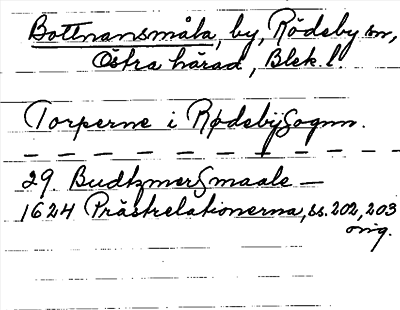 Bottnansmåla, by, Rödeby sn,
Östra härad, Blek. l.
Torperne i Rødebÿ Sognn.
29. Budtzmer Smaale —
1624 Prästrelationerna, ss. 202, 203
orig.